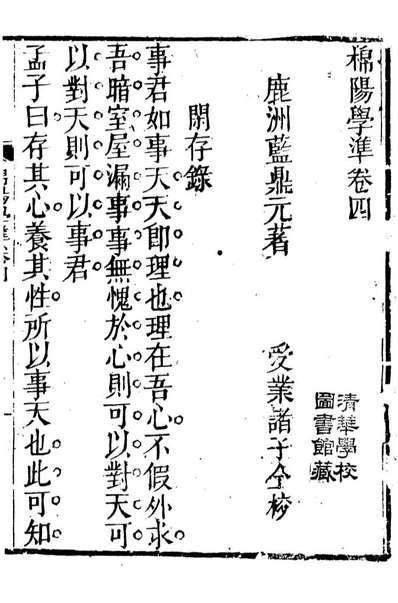 棉陽學準卷四
鹿洲藍鼎元著
受業諸子仝校
清華學校
圖書館藏
閑存錄
事君如事天天卽理也理在吾心不假外求
吾暗室屋漏事事無愧於心則可以對天可
以對天則可以事君
孟子曰存其心養其性所以事天也此可知